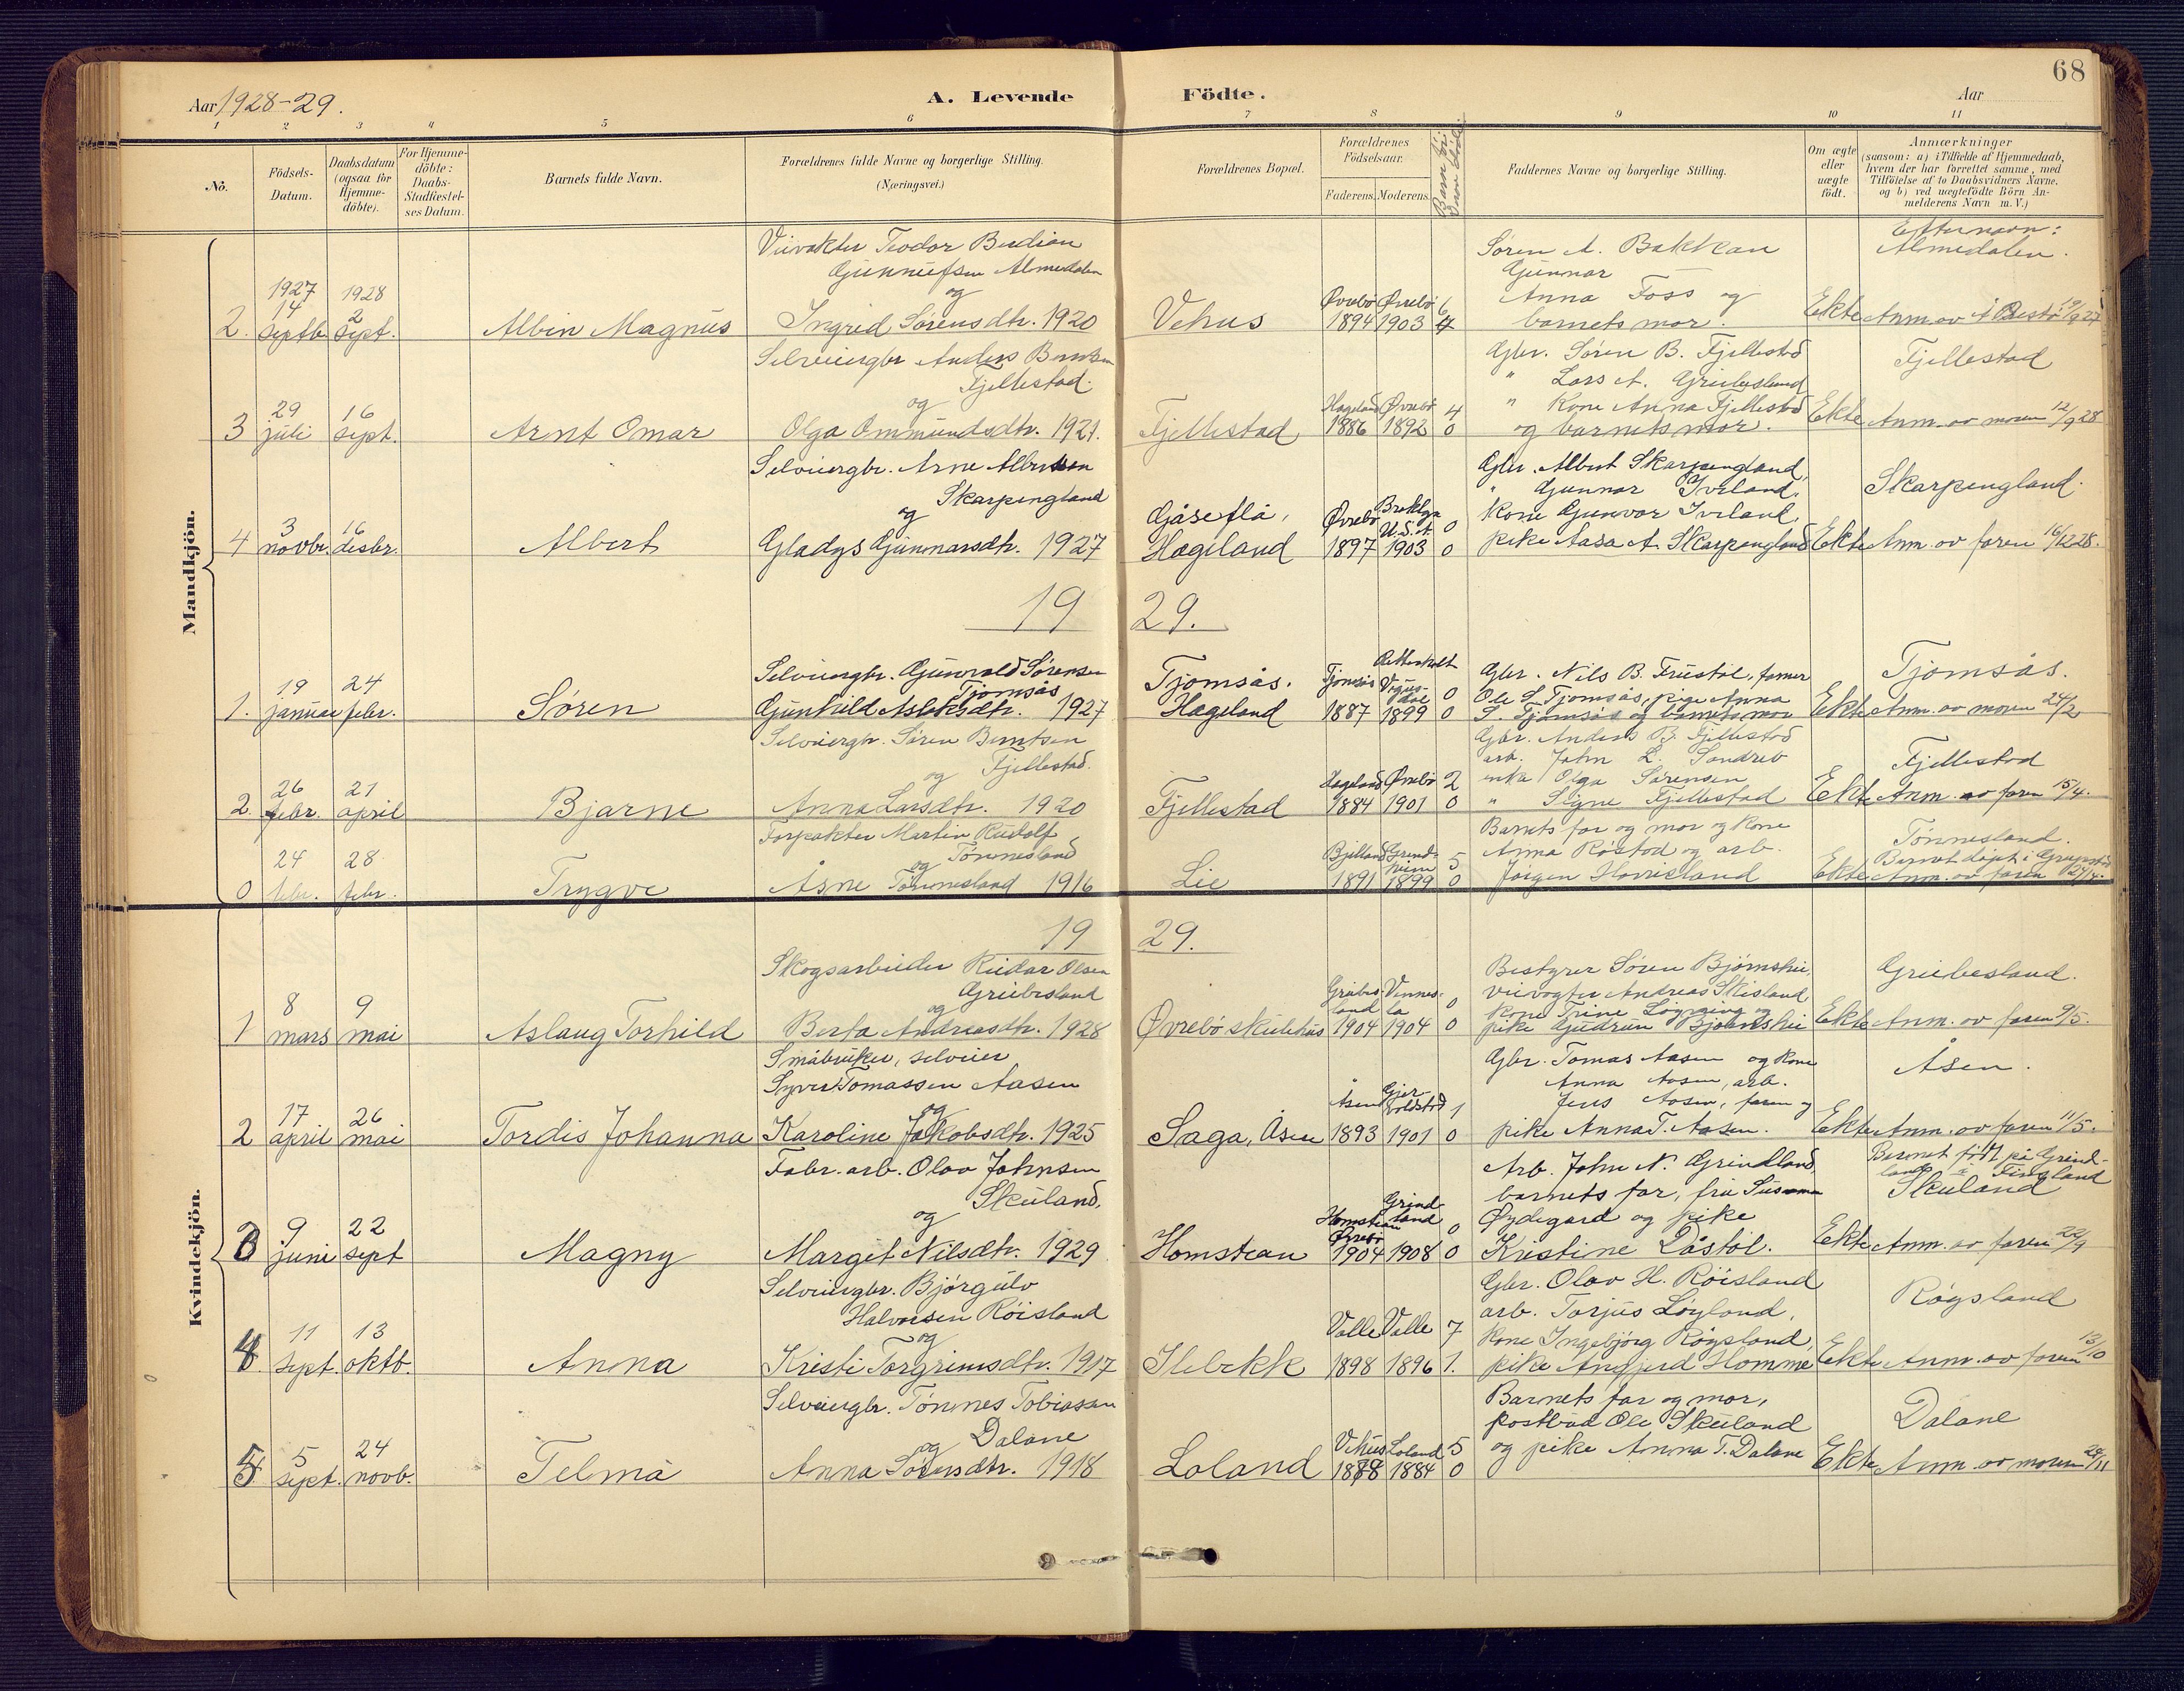 68
Aar 1928-29.
A. Levende Födte.
Aar
1 2 3 4 5 6 7 8 9 10 11
No.
Födsels-Datum.
Daabsdatum (ogsaa for Hjemme-döbte).
For Hjemme-döbte: Daabs-Stadfæstel-ses Datum.
Barnets fulde Navn.
Forældrenes fulde Navne og borgerlige Stilling.
(Næringsvei.)
Forældrenes Bopæl.
Forældrenes Födselsaar.
Faderens. Moderens.
Faddernes Navne og borgerlige Stilling.
Om ægte eller uægte födt.
Anmærkninger
(saasom: a) i Tilfælde af Hjemmedaab, hvem der har forrettet samme, med Tilföielse af to Daabsvidners Navne, og b) ved uægtefödte Börn An-melderens Navn m. V.)
Mandkjön.
Teodor
Gunnufsen Almedalen
og
2. 1927 14 septb. 1928 2 sept. Albin Magnus Ingrid Sørensdtr. 1920 Vehus Øvrebø 1894 Øvrebø 1903 6
Søren A. Bakkan
Gunnar
Anna Foss og
barnets mor.
Ekte
Etternavn:
Almedalen.
Selveiergbr. Anders Berntsen
Fjellestad.
og
3 29 juli 16 sept. Arnt Omar Olga Ommundsdtr. 1921. Fjellestad Hægeland 1886 Øvrebø 1892 4 0
Gbr. Søren B. Fjellestad
" Lars A. Griebesland
" Kone Anna Fjellestad
og barnets mor.
Ekte
Fjellestad
Anm. av moren 12/9 28
Selveiergbr. Arne Albertsen
Skarpengland
og
4 3 novbr. 16 desbr. Albert Gladys Gunnarsdtr. 1927
Gåseflå,
Hægeland Øvrebø 1897 Brooklyn U.S.A. 1903 0 0
Gbr. Albert Skarpengland,
" Gunnar Iveland,
Kone Gunvor Iveland,
pike Aasa A. Skarpengland
Ekte
Skarpengland.
Anm. av faren 16/12 28.
19 29.
Selveiergbr. Gunvald Sørensen
Tjomsås
1. 19 januar 24 febr. Søren Gunhild Aslaksdtr. 1927
Tjomsås.
Hægeland Tjomsås 1887 1899 0 0
Gbr. Nils B. Frustøl, farmer
Ole S. Tjomsås, pige Anna
S. Tjomsås og barnets mor
Ekte
Tjomsås.
Anm. av moren 24/2
Selveiergbr. Søren Berntsen
Fjellestad.
og
2. 26 febr. 21 april Bjarne Anna Larsdtr. 1920 Fjellestad Hægeland 1884 Øvrebø 1901 2 0
Gbr. Anders B. Fjellestad
arb. John L. Sandrev
enke Olga Sørensen
" Signe Fjellestad
Ekte
Fjellestad
Anm. av faren 15/4.
Forpakter Martin Rudolf
og Tønnesland
0 24 febr. 28 febr. Trygve Åsne Tønnesland 1916 Lie Bjelland 1891 Grindheim 1899 5 0
Barnets far og mor og Kone
Anna Røstad og arb.
Jørgen
Ekte
Tønnesland.
Barnet døpt i
Anm. av faren
Kvindekjön.
19 29.
Skogsarbeider Reidar Olsen
Griebesland
og
1 8 mars 9 mai Aslaug Torhild Berta Andreasdtr. 1928 Øvrebø skulehus Griebesland 1904 Vennesla 1904 0 0
Bestyrer Søren Bjørnshei,
veivogter Andreas Skisland
Kone Trine
pike Gudrun Bjørnshei
Ekte
Griebesland.
Anm. av faren 9/5.
Småbruker, selveier
Syvert Tomassen Aasen
og
2 17 april 26 mai Tordis Johanna Karoline Jakobsdtr. 1925 Saga, Åsen Åsen 1893 1901 1 0
Gbr. Tomas Aasen og Kone
Anna Aasen, arb.
Jens Aasen, faren og
pike Anna T. Aasen.
Ekte
Åsen.
Anm. av faren 11/5.
Fabr. arb. Olav Johnsen
Skuland,
og
3 9 juni 22 sept Magny Margit Nilsdtr. 1929 Homstean Homstean Øvrebø 1904 Grindland 1908 0 0
Arb. John N. Grindland
barnets far, fru Susanna
Øydegard og pike
Kristine Låstøl.
Ekte
Barnet født på Grind-
land i Finsland
Skuland
Anm. av faren 22/9
Selveiergbr. Bjørgulv
Halvorsen Røisland
og
4 11 sept. 13 oktb. Anna Kristi Torgrimsdtr. 1917 Ilebekk Valle 1898 Valle 1896 7 1.
Gbr. Olav H. Röisland
arb. Torjus Løyland,
Kone Ingebjørg Røysland,
pike Homme
Ekte
Røysland
Anm. av faren 13/10
Selveiergbr. Tønnes Tobiassen
og Dalane
5 5 sept. 24 novb. Telma Anna Sørensdtr. 1918 Loland Vehus 1878 Loland 1884 5 0
Barnets far og mor,
postbud Ole Skuland
og pike Anna T. Dalane
Ekte
Dalane
Anm. av moren 24/11